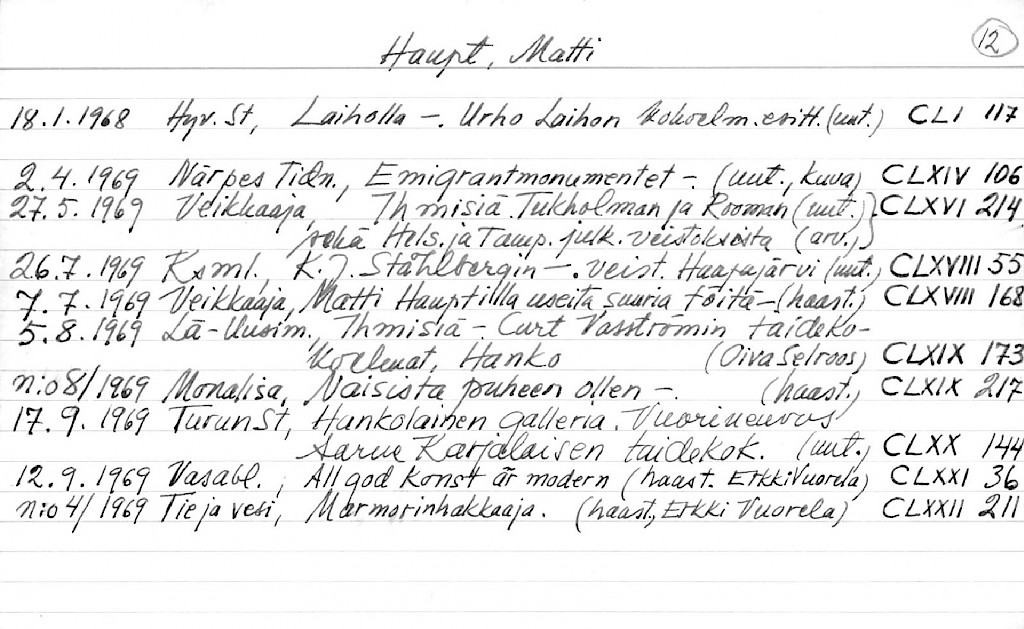 12
Haupt, Matti
18.1.1968 Hyv.St, Laiholla -. Urho Laihon kokoelm.esitt.(uut.) CLI 117
2.4.1969 Närpes Tidn., Emigrantmonumentet -. (uut., kuva) CLXIV 106
27.5.1969 Veikkaaja, Ihmisiä. Tukholman ja Rooman (uut.) } CLXVI 214
sekä Hels. ja Tamp. julk. veistoksista (arv.)
26.7.1969 Ksml., K.J. Ståhlbergin -. veist. Haapajärvi (uut.) CLXVIII 55
7.7.1969 Veikkaaja, Matti Hauptilla useita suuria töitä - (haast.) CLXVIII 168
5.8.1969 Lä-Uusim., Ihmisiä - Curt Vasströmin taideko-
koelmat, Hanko (Oiva Selroos) CLXIX 173
n:o 8/1969 Monalisa, Naisista puheen ollen -. (haast.) CLXIX 217
17.9.1969 TurunSt, Hankolainen galleria. Vuorineuvos
Aarne Karjalaisen taidekok. (uut.) CLXX 144
12.9.1969 Vasabl., All god konst är modern (haast. Erkki Vuorela) CLXXI 36
n:o 4/1969 Tie ja vesi, Marmorinhakkaaja. (haast., Erkki Vuorela) CLXXII 211